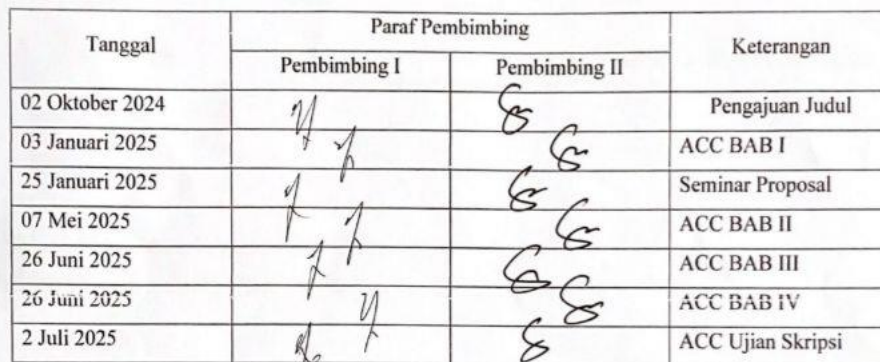 Tanggal Paraf Pembimbing Keterangan
Pembimbing I Pembimbing II
02 Oktober 2024 Pengajuan Judul
03 Januari 2025 ACC BAB I
25 Januari 2025 Seminar Proposal
07 Mei 2025 ACC BAB II
26 Juni 2025 ACC BAB III
26 Juni 2025 ACC BAB IV
2 Juli 2025 ACC Ujian Skripsi